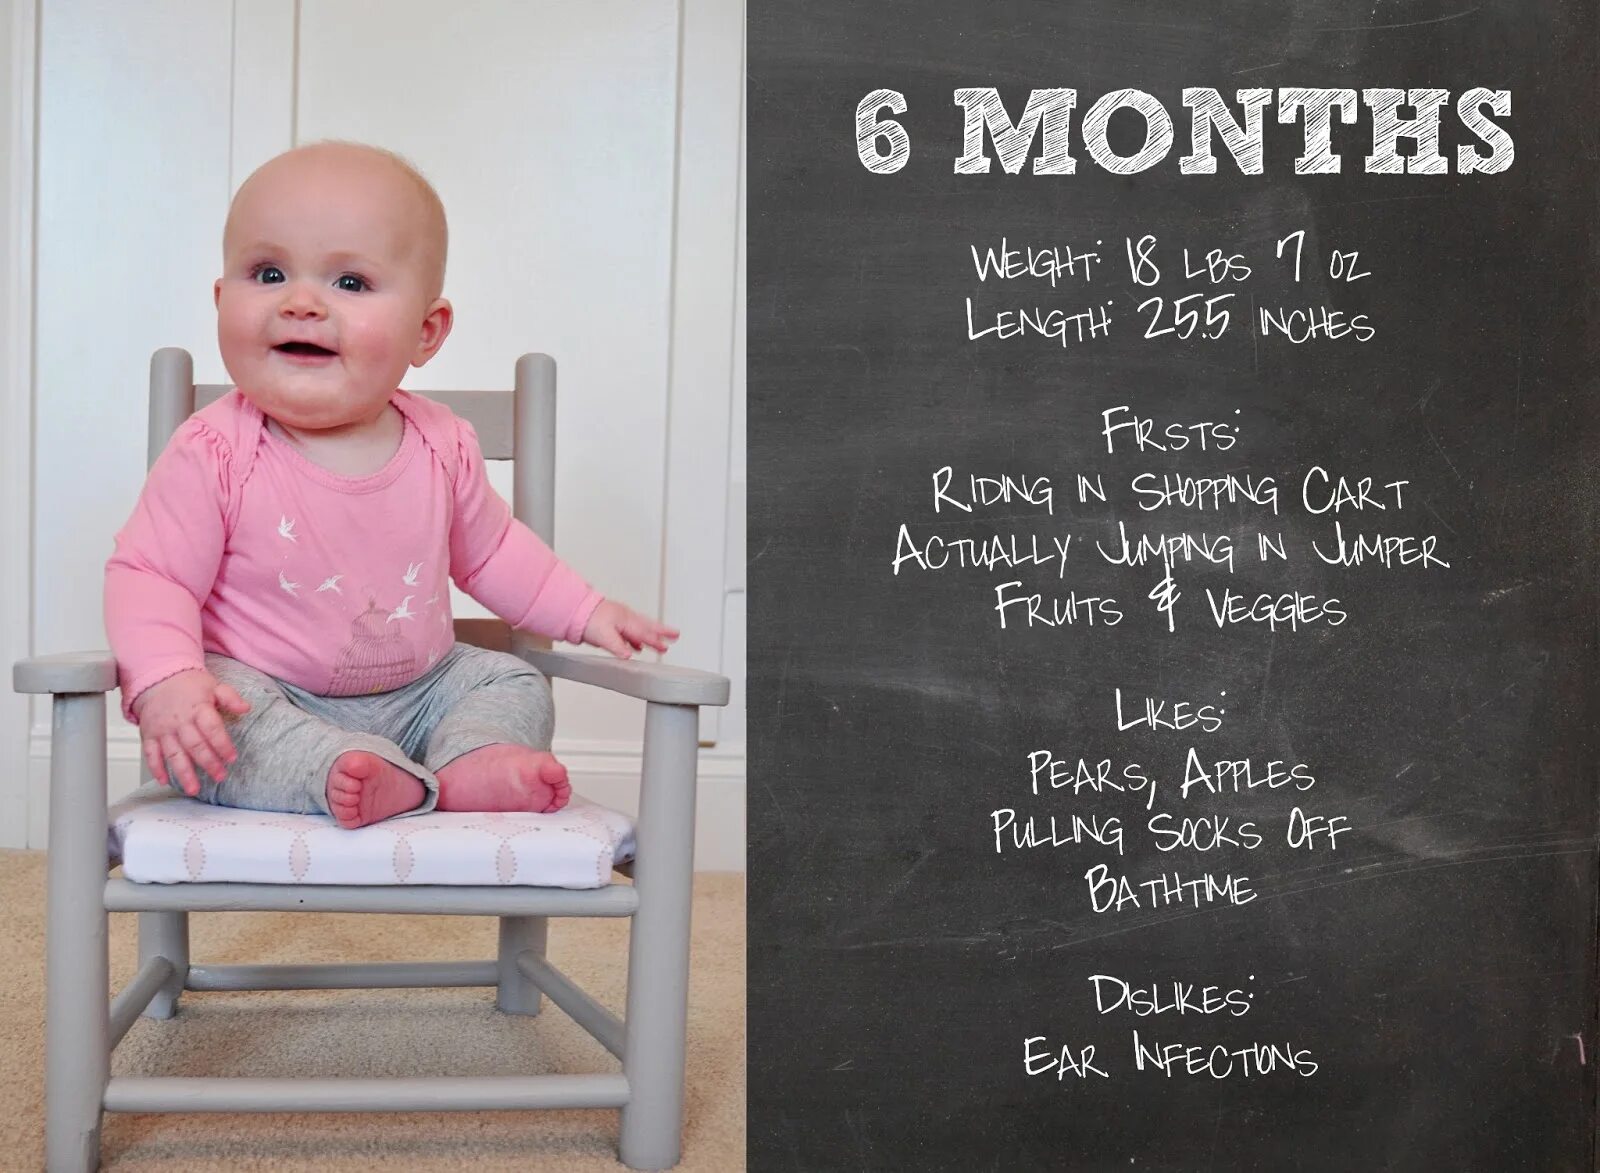 6 MONTHS
WEIGHT: 18 LBS 7 OZ
LENGTH: 25.5 INCHES
FIRSTS:
RIDING IN SHOPPING CART
ACTUALLY JUMPING IN JUMPER
FRUITS & VEGGIES
LIKES:
PEARS, APPLES
PULLING SOCKS OFF
BATHTIME
DISLIKES:
EAR INFECTIONS